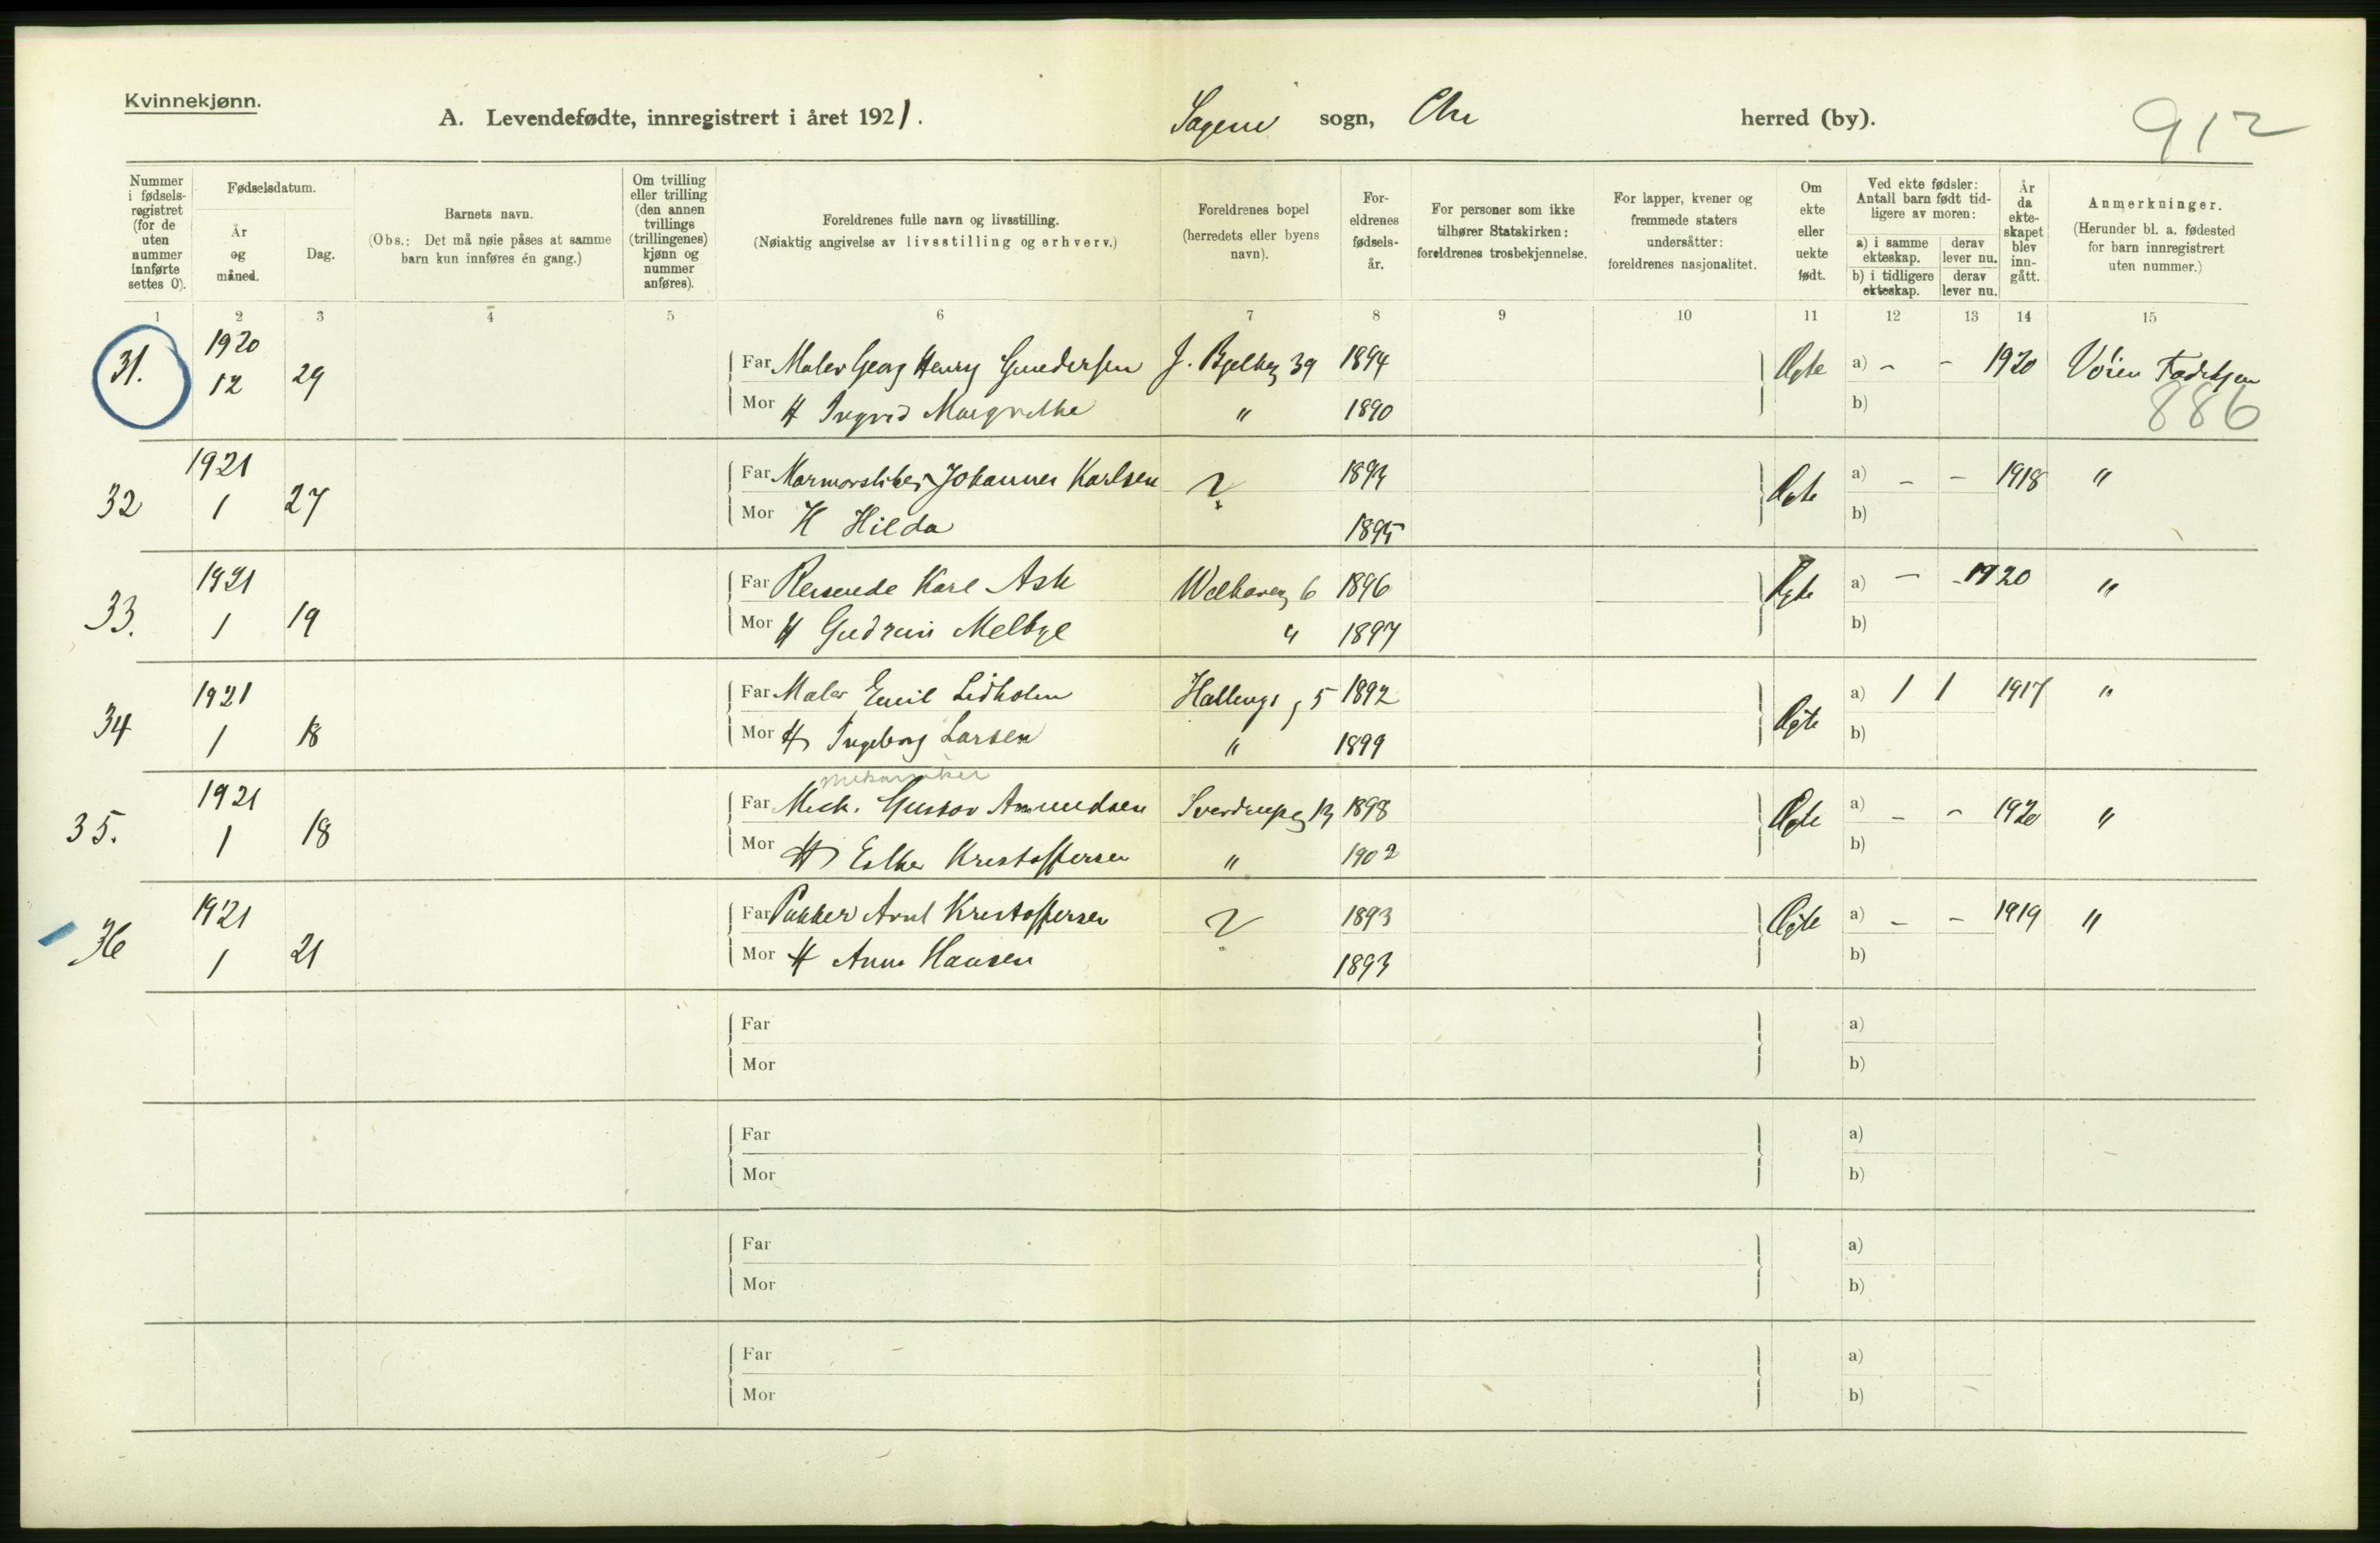 Kvinnekjønn.
A. Levendefødte, innregistrert i året 1921. Sagene sogn, Chr herred (by). 912
Nummer i fødsels-registret (for de uten nummer innførte settes 0).
Fødselsdatum.
År og måned.
Dag.
Barnets navn.
(Obs.: Det må nøie påses at samme barn kun innføres én gang.)
Om tvilling eller trilling (den annen tvillings (trillingenes) kjønn og nummer anføres).
Foreldrenes fulle navn og livsstilling.
(Nøiaktig angivelse av livsstilling og erhverv.)
Foreldrenes bopel (herredets eller byens navn).
For-eldrenes fødsels-år.
For personer som ikke tilhører Statskirken: foreldrenes trosbekjennelse.
For lapper, kvener og fremmede staters undersåtter: foreldrenes nasjonalitet.
Om ekte eller uekte født.
Ved ekte fødsler: Antall barn født tid-ligere av moren:
a) i samme ekteskap.
derav lever nu.
b) i tidligere ekteskap.
derav lever nu.
År da ekte-skapet blev inn-gått.
Anmerkninger.
(Herunder bl. a. fødested for barn innregistrert uten nummer.)
1 2 3 4 5 6 7 8 9 10 11 12 13 14 15
31. 1920 12 29 Far Maler Georg Henry Gundersen 39 1894 Ægte a) - - 1920 Vöien Fødehjem
Mor H Ingrid Margrethe " 1890 b) 886
32 1921 1 27 Far Marmorsliber Johannes Karlsen ? 1894 Ægte a) - - 1918 "
Mor H Hilda 1895 b)
33. 1921 1 19 Far Reisende Karl Ask Welhavensg 6 1896 Ægte a) - - 1920 "
Mor H Gudrun Melbye " 1897 b)
34 1921 1 18 Far Maler Emil Lidholm Hallings g 5 1892 Ægte a) 1 1 1917 "
Mor H Ingeborg Larsen " 1899 b)
mekaniker
35. 1921 1 18 Far Mek. Gustav Amundsen Sverdrupsg 1898 Ægte a) - - 1920 "
Mor H Esther Kristoffersen " 1902 b)
36 1921 1 21 Far Pakker Kristoffersen ? 1893 Ægte a) - - 1919 "
Mor H Anna Hansen 1893 b)
Far a)
Mor b)
Far a)
Mor b)
Far a)
Mor b)
Far a)
Mor b)